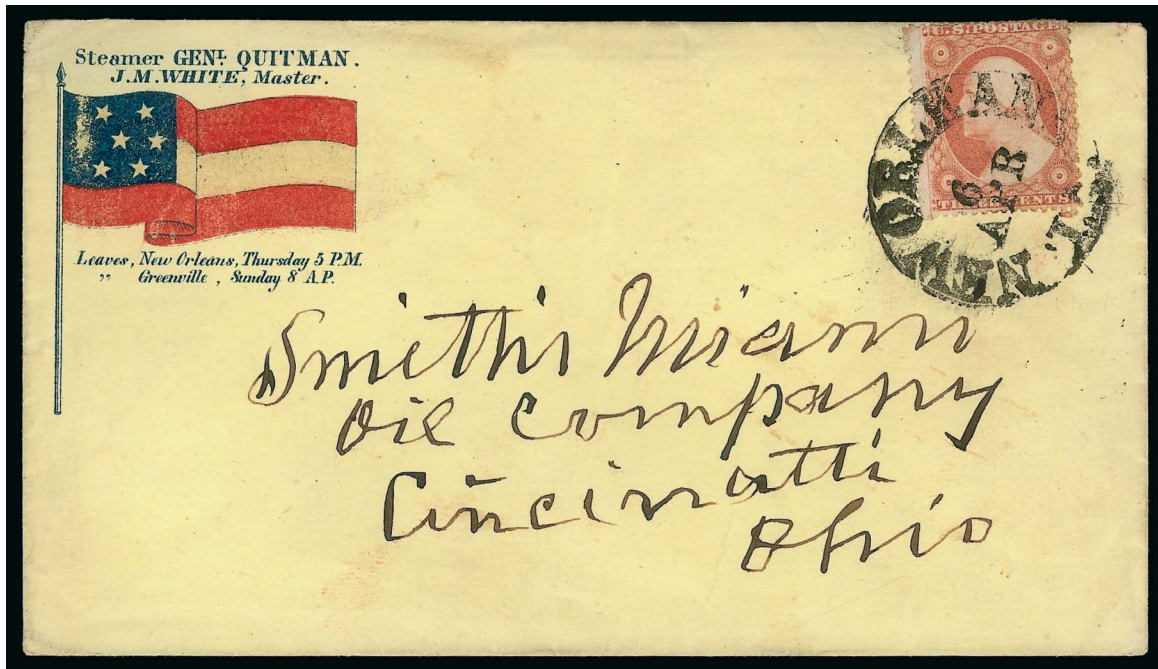 Steamer GENL. QUITMAN.
J.M. WHITE, Master.
Leaves, New Orleans, Thursday 5 P.M.
" Greenville, Sunday 8 A.P.
U.S. POSTAGE
THREE CENTS
NEW ORLEANS
6
APR
Smith's
Oil Company
Cincinatti
Ohio